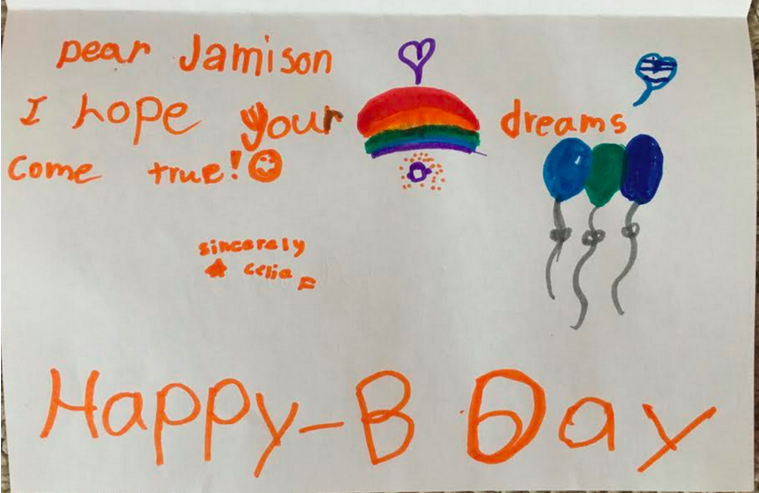 Dear Jamison
I hope your dreams
come true!
sincerely
Celia F
Happy-B Day